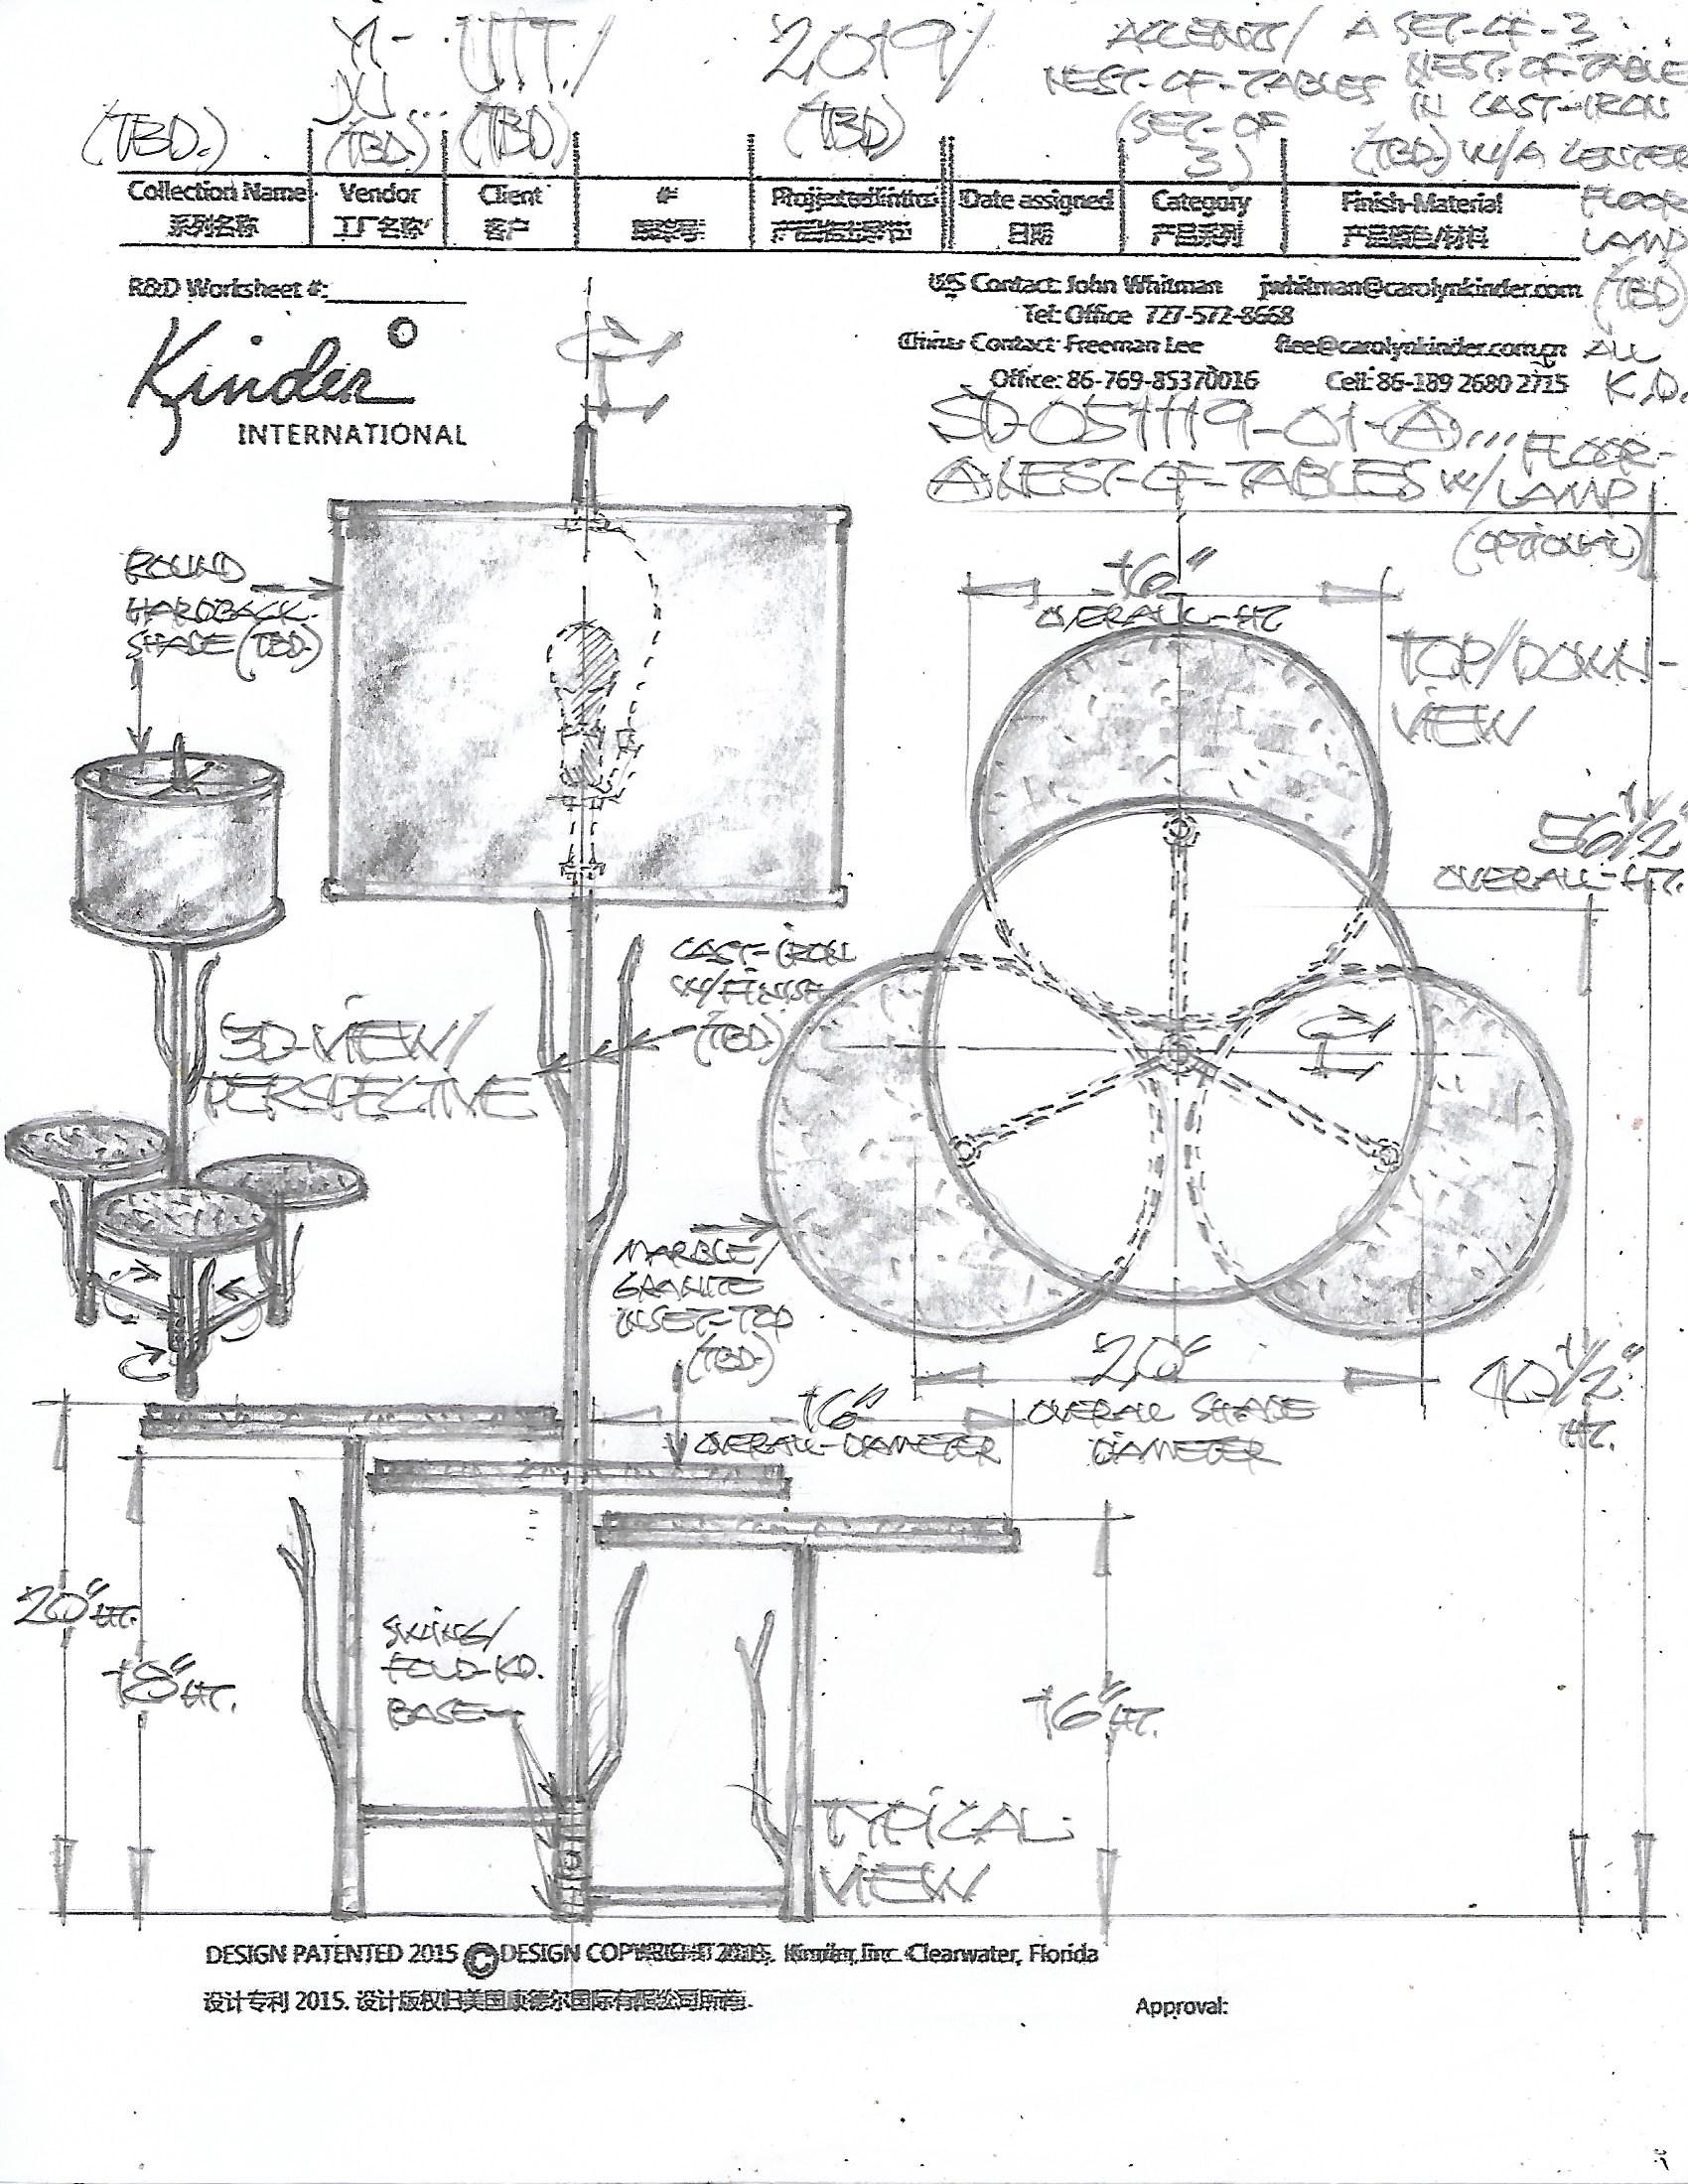 YI-
JU...
UTT./
2019/
ACCENTS/
NEST-OF-TABLES
(SET-OF
3)
A SET-OF-3
NEST-OF-TABLE
IN CAST-IRON
(TBD.) W/A CENTER
FLOOR
LAMP
(TBD)
ALL
K.D.
(TBD.) (TBD.) (TBD) (TBD)
Collection Name Vendor Client # Date assigned Category Finish-Material
系列名称 工厂名称 客户 日期 产品系列 产品颜色/材料
R&D Worksheet #:
US Contact: John Whitman jwhitman@carolynkinder.com
Tel: Office 727-572-8668
China Contact: Freeman Lee flee@carolynkinder.com.cn
Office: 86-769-85370016 Cell: 86-189 2680 2715
Kinder
INTERNATIONAL
SD-051119-01-A...
A NEST-OF-TABLES W/ FLOOR-
LAMP
(OPTIONAL)
ROUND
HARDBACK-
SHADE (TBD.)
16"
OVERALL-HT
TOP/DOWN-
VIEW
56 1/2"
OVERALL-HT.
CAST-IRON
W/FINISH
(TBD.)
3D-VIEW/
PERSPECTIVE
MARBLE/
GRANITE
INSET-TOP
(TBD.)
20"
OVERALL SHADE
DIAMETER
40 1/2"
HT.
16"
OVERALL-DIAMETER
20" HT.
18" HT.
SWING/
FOLD-KD.
BASE
16" HT.
TYPICAL-
VIEW
DESIGN PATENTED 2015 © DESIGN COPYRIGHT 2015. Kinder, Inc. Clearwater, Florida
设计专利 2015. 设计版权归美国康德尔国际有限公司所有.
Approval: